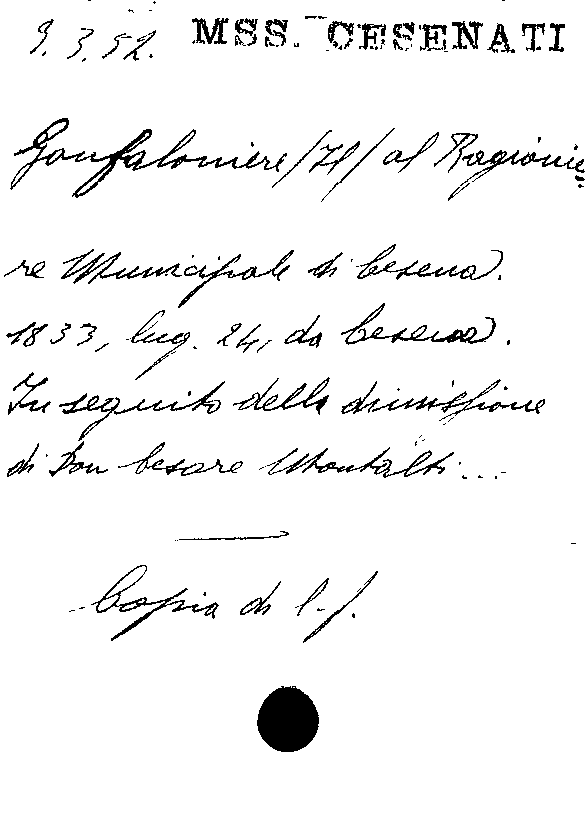 9. 3. 52. MSS. CESENATI
Gonfaloniere /Il/ al Ragionie
re Municipale di Cesena.
1833, lug. 24, da Cesena.
In seguito della dimissione
di Don Cesare Montalti...
Copia di l. f.